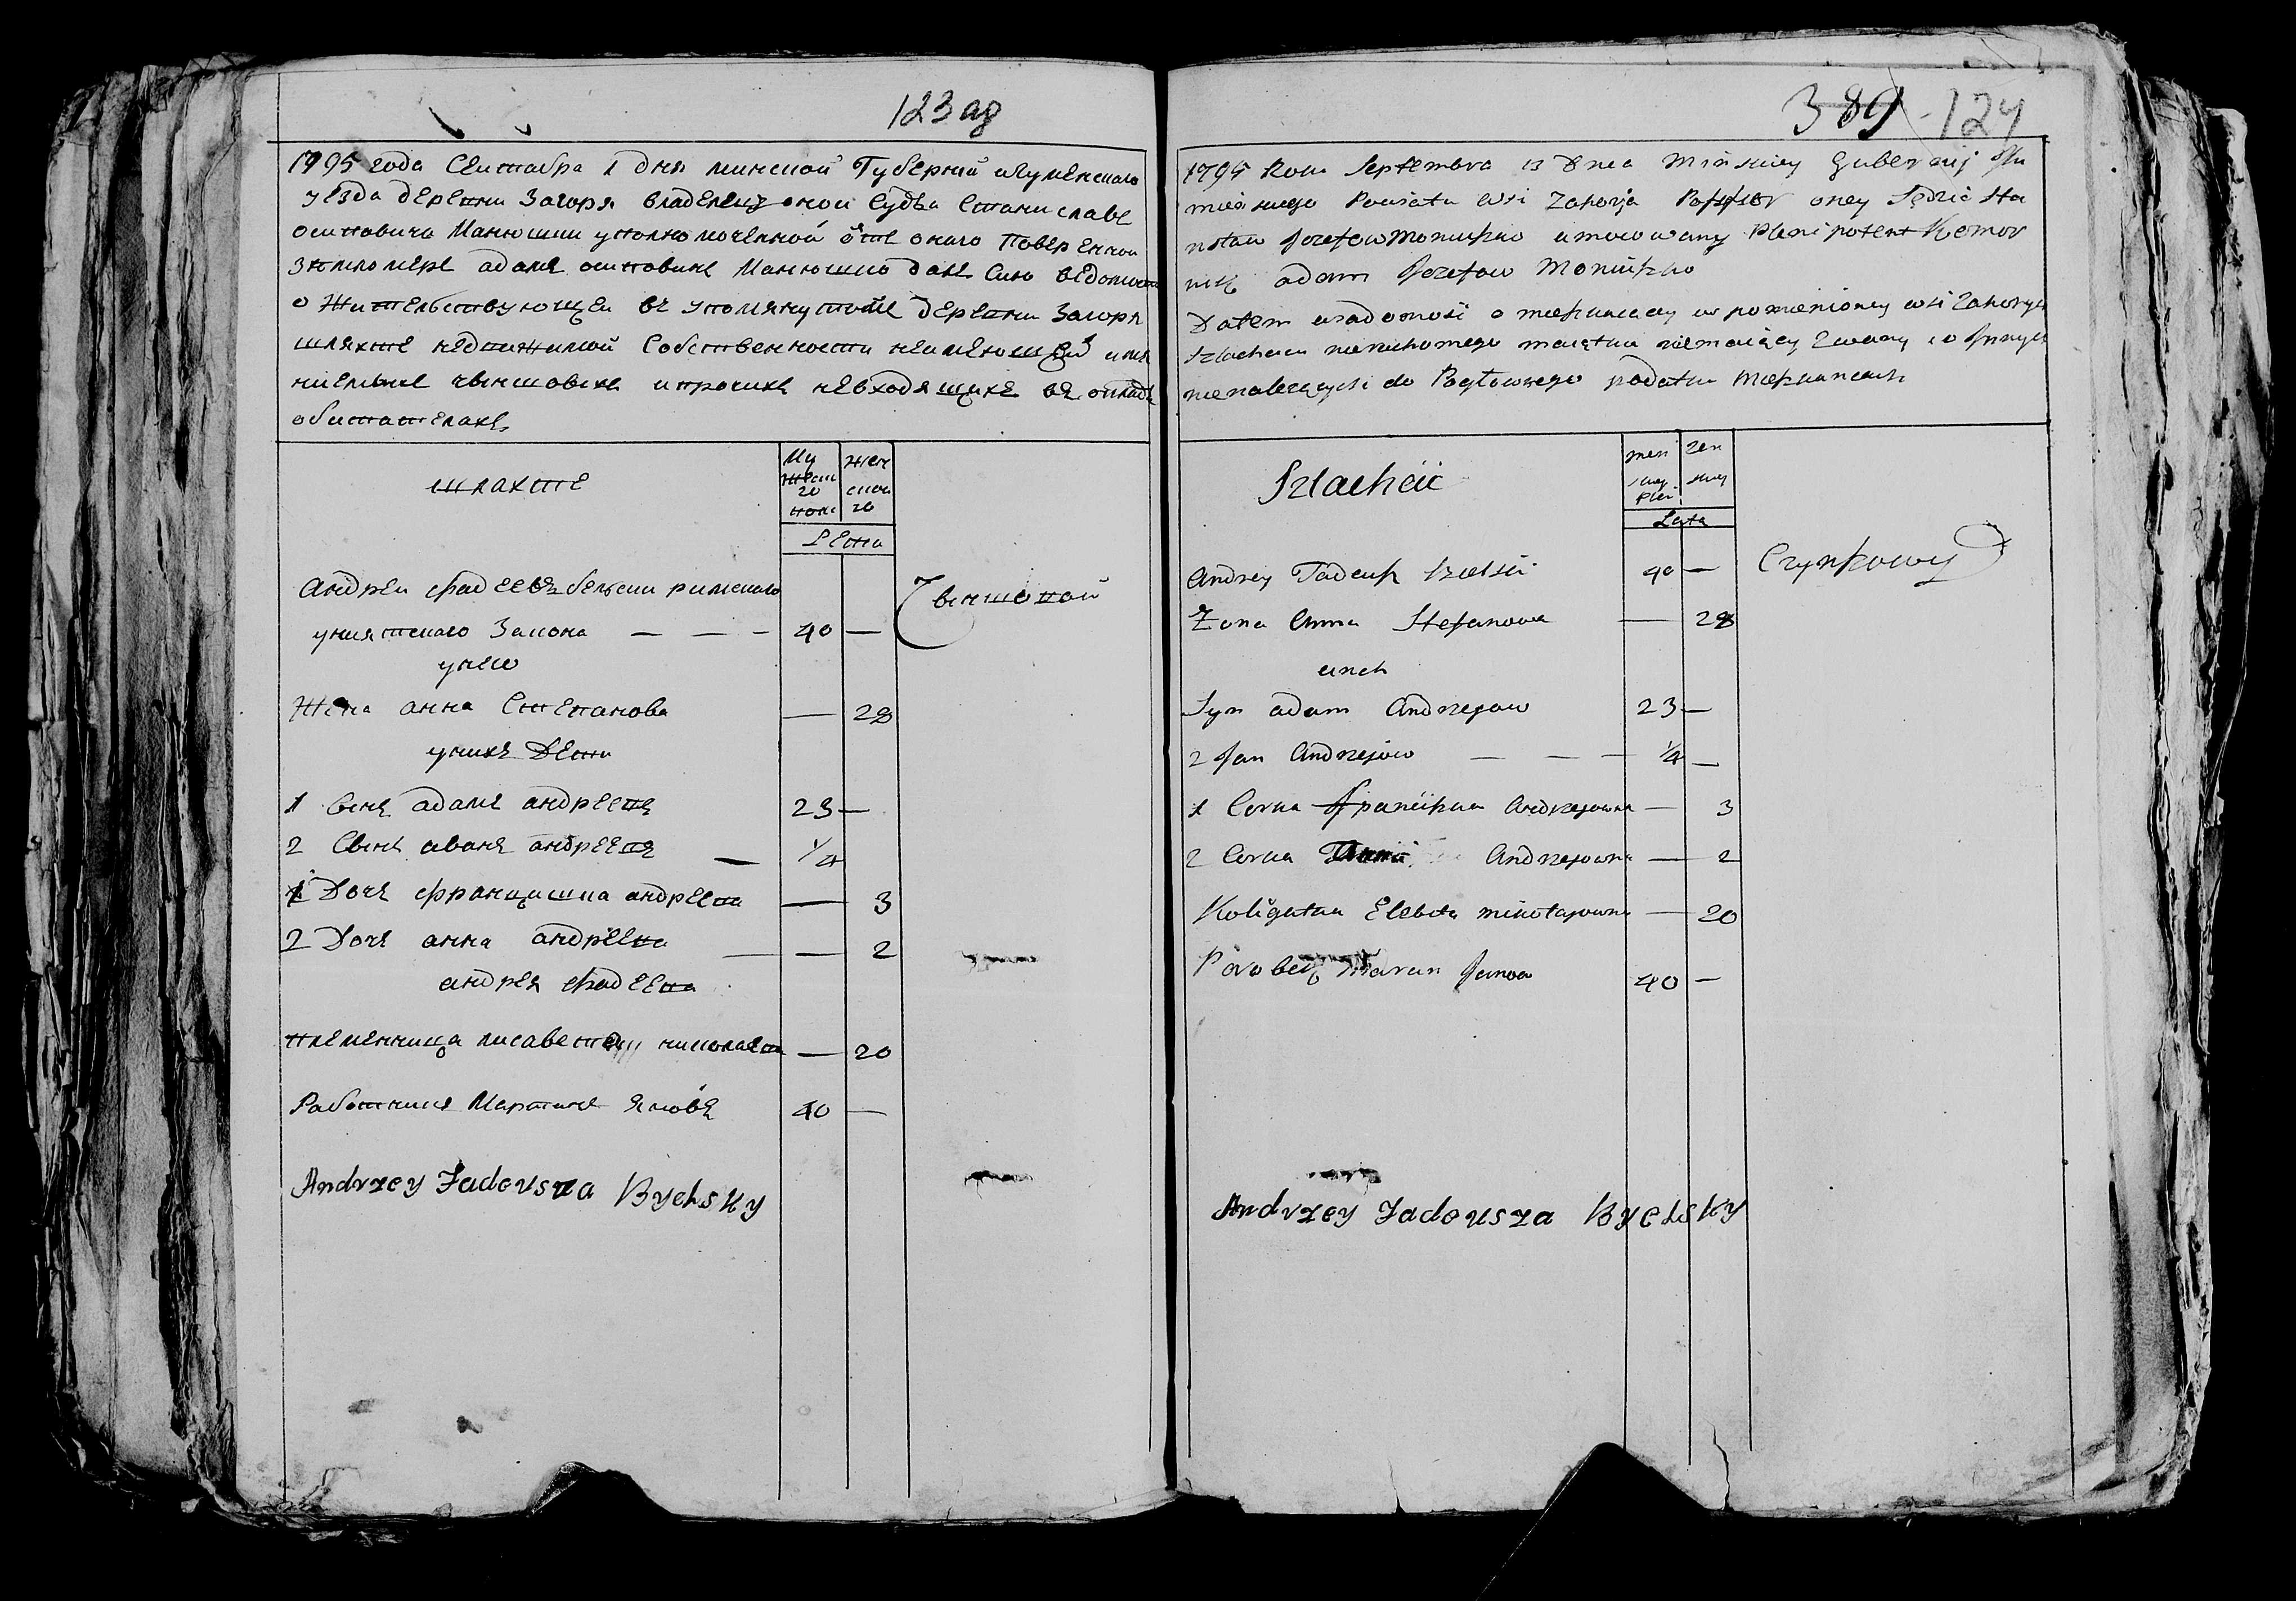 123 ад
1795 года Сентабра 1 дня минской Губернии игуменскаго
уезда деревни Загоря владелец оной Судья Станиславъ
осиповичъ Манюшки уполномоченной отъ онаго Поверенной
землемеръ адамъ осиповичъ Манюшко далъ Сию ведомость
о Жительствующей въ упомянутой деревни Загоря
шляхте недвижимой Собственности неимеющей имя
чиншовыхъ и прочихъ невходящихъ въ окладъ
обитателахъ
шляхтѣ
Му жеск го пола
Жен ског го
Лета
Андреи фадеевъ бельски римскаго
униятскаго Закона — — — 40 — Чиншовой
у него
Жена анна Степанова — 28
у нихъ Дети
1 Сынъ адамъ андреевъ 23 —
2 Сынъ иванъ андреевъ — 1/4
1 Дочь францишка андреева — 3
2 Дочь анна андреева — — 2
андрея фадеева
племенница лисавета николаева — 20
Работникъ Мартинъ Яковъ 40 —
Andrzey Jadeusza Byelsky
389 - 124
1795 Roku Septembra 13 Dnia Minskiey Gubernij Jhu
mienskiego Powiatu wsi Zahorja Possesor oney Sędzia Sta
nisław Jozefow Moniuszko umocowany Plenipotent Komor
nik adam Jozefow Moniuszko
Datem wiadomość o mieszkaiącey w pomienioney wsi Zahorych
Szlachcie nieruchomego maiątku niemaiący Zwany i o Jnnych
nienależących do Pogłownego podatku Mieszkancach
Szlacheic
men skey płci
zen skey
Lata
Andrey Tadeusz Bielski 40 — Czynszowy
Żona Anna Stefanowa — 28
unich
Syn adam Andrzejow 23 —
2 Jan Andrzejow — — — 1/4 —
1 Corka Franciszka Andrzejowna — 3
2 Corka Anna Andrzejowna — 2
Koligatka Elżbeta mikołajowna — 20
Parobek Marcin Janow 40 —
Andrzey Jadeusza Byelsky